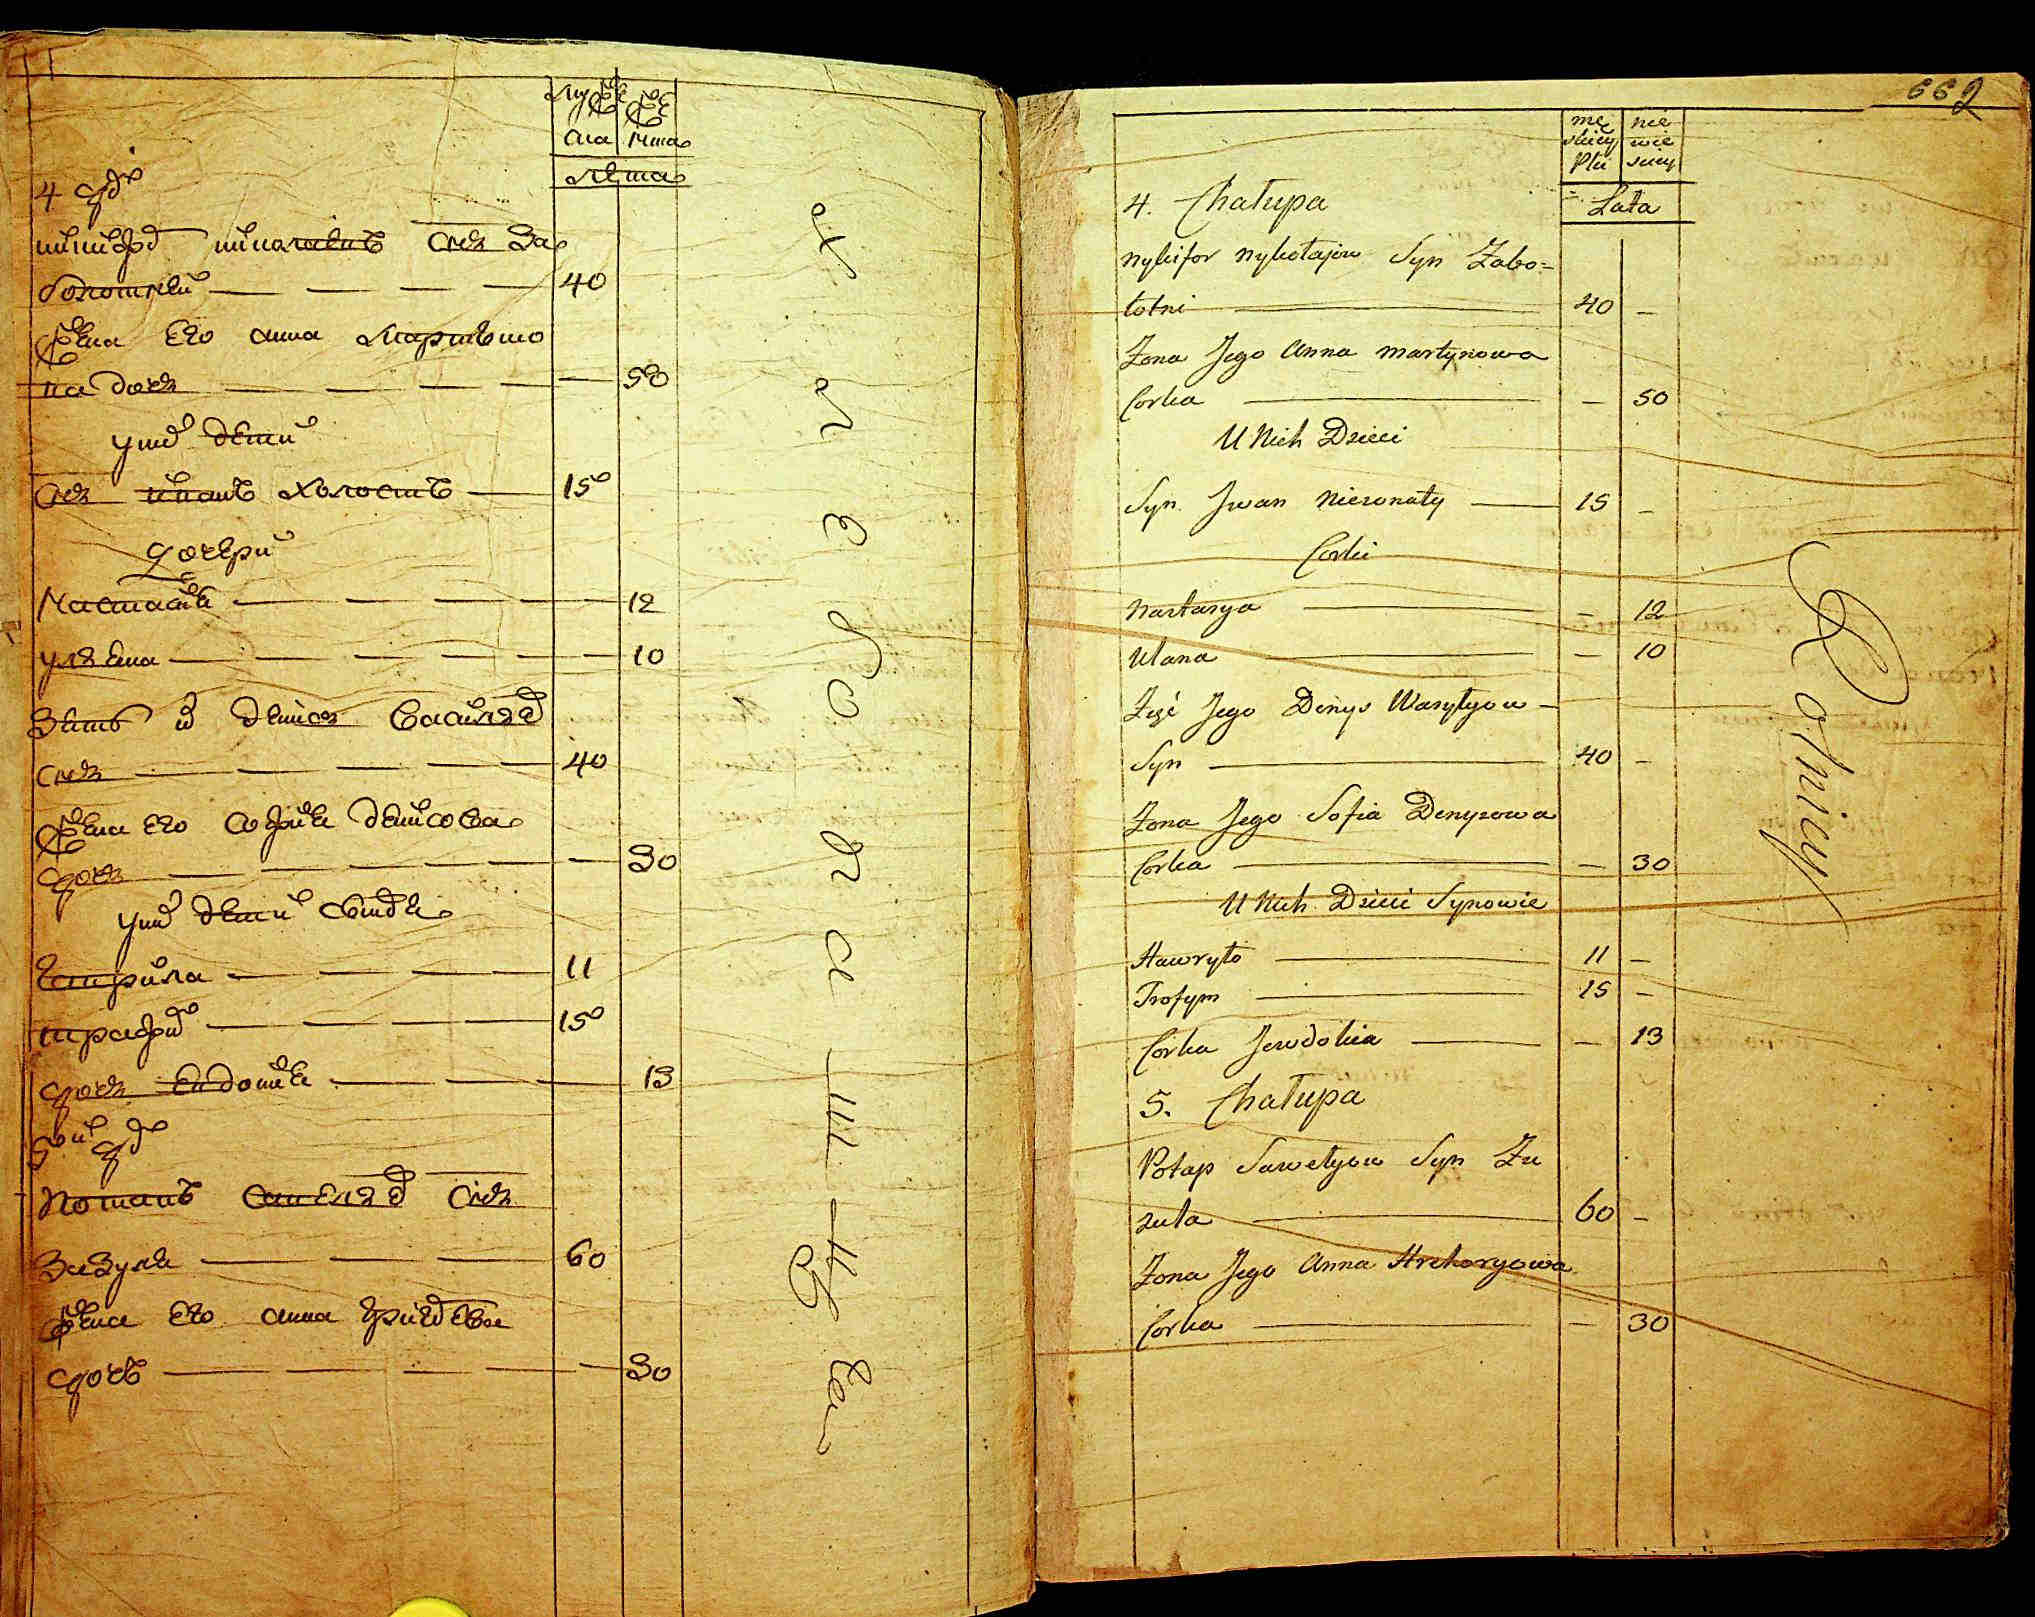 4 дво
никифоръ николаевъ снъ За
болотней 40
жена его анна мартѣно
ва дочь 50
у нихъ дети
снъ иванъ холостъ 15
дочери
Настасия 12
уляна 10
Зять ихъ денисъ Василевъ
снъ 40
жена его софия денисова
дочь 30
у нихъ дети
гаврила 11
трафимъ 15
дочь евдокия 13
5й дво
Потапъ савелевъ снъ
Зазуля 60
жена его анна григорева
дочь 30
хлебопашцы
662
męskiey płci
niewieściey
Lata
4. Chałupa
Nykifor Nykołajow Syn Zabo=
łotni 40 -
Zona Jego Anna Martynowa
Corka - 50
U Nich Dzieci
Syn Jwan Nieżonaty 15 -
Corki
Nastasya - 12
Ulana - 10
Zięć Jego Denys Wasylyow -
Syn 40 -
Zona Jego Sofia Denysowa
Corka - 30
U Nich Dzieci Synowie
Hawryło 11 -
Trofym 15 -
Corka Jewdokia - 13
5. Chałupa
Potap Sawelyow Syn Za
zula 60 -
Zona Jego Anna Hrehoryowa
Corka - 30
Rolnicy